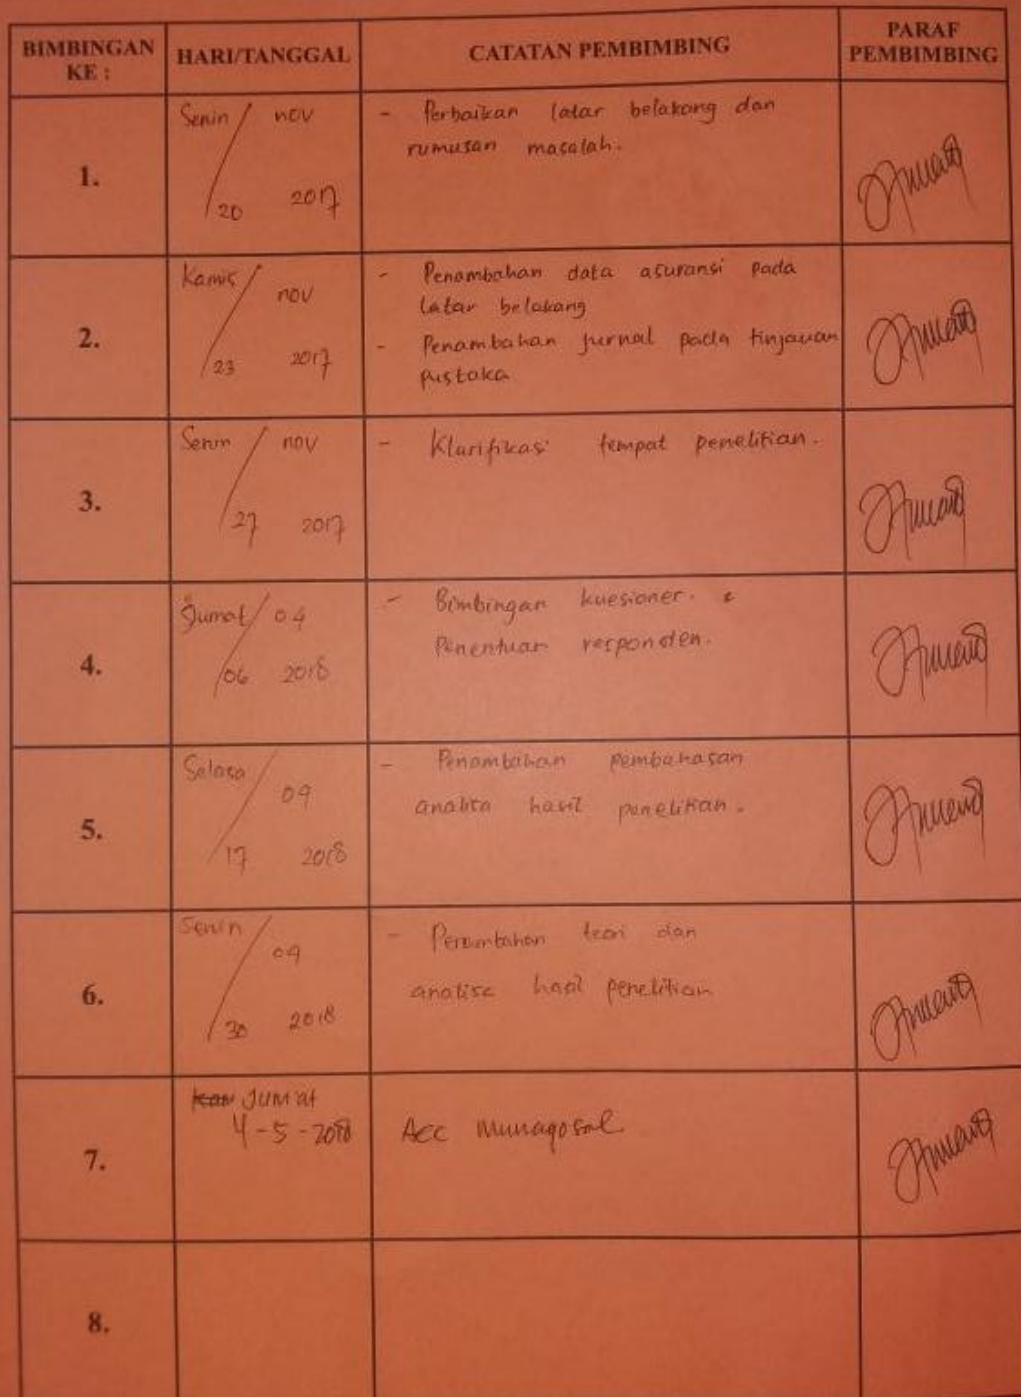 BIMBINGAN KE : HARI/TANGGAL CATATAN PEMBIMBING PARAF PEMBIMBING
1.
Senin / nov
20 2017
- Perbaikan latar belakang dan
rumusan masalah.
2.
Kamis / nov
23 2017
- Penambahan data asuransi pada
latar belakang
- Penambahan jurnal pada tinjauan
pustaka
3.
Senin / nov
27 2017
- Klarifikasi tempat penelitian.
4.
Jumat / 04
06 2018
- Bimbingan kuesioner.
Penentuan responden.
5.
Selasa / 04
17 2018
- Penambahan pembahasan
analisa hasil penelitian.
6.
Senin / 04
30 2018
- Penambahan teori dan
analisa hasil penelitian
7.
Jum'at
4-5-2018
Acc munaqosal
8.